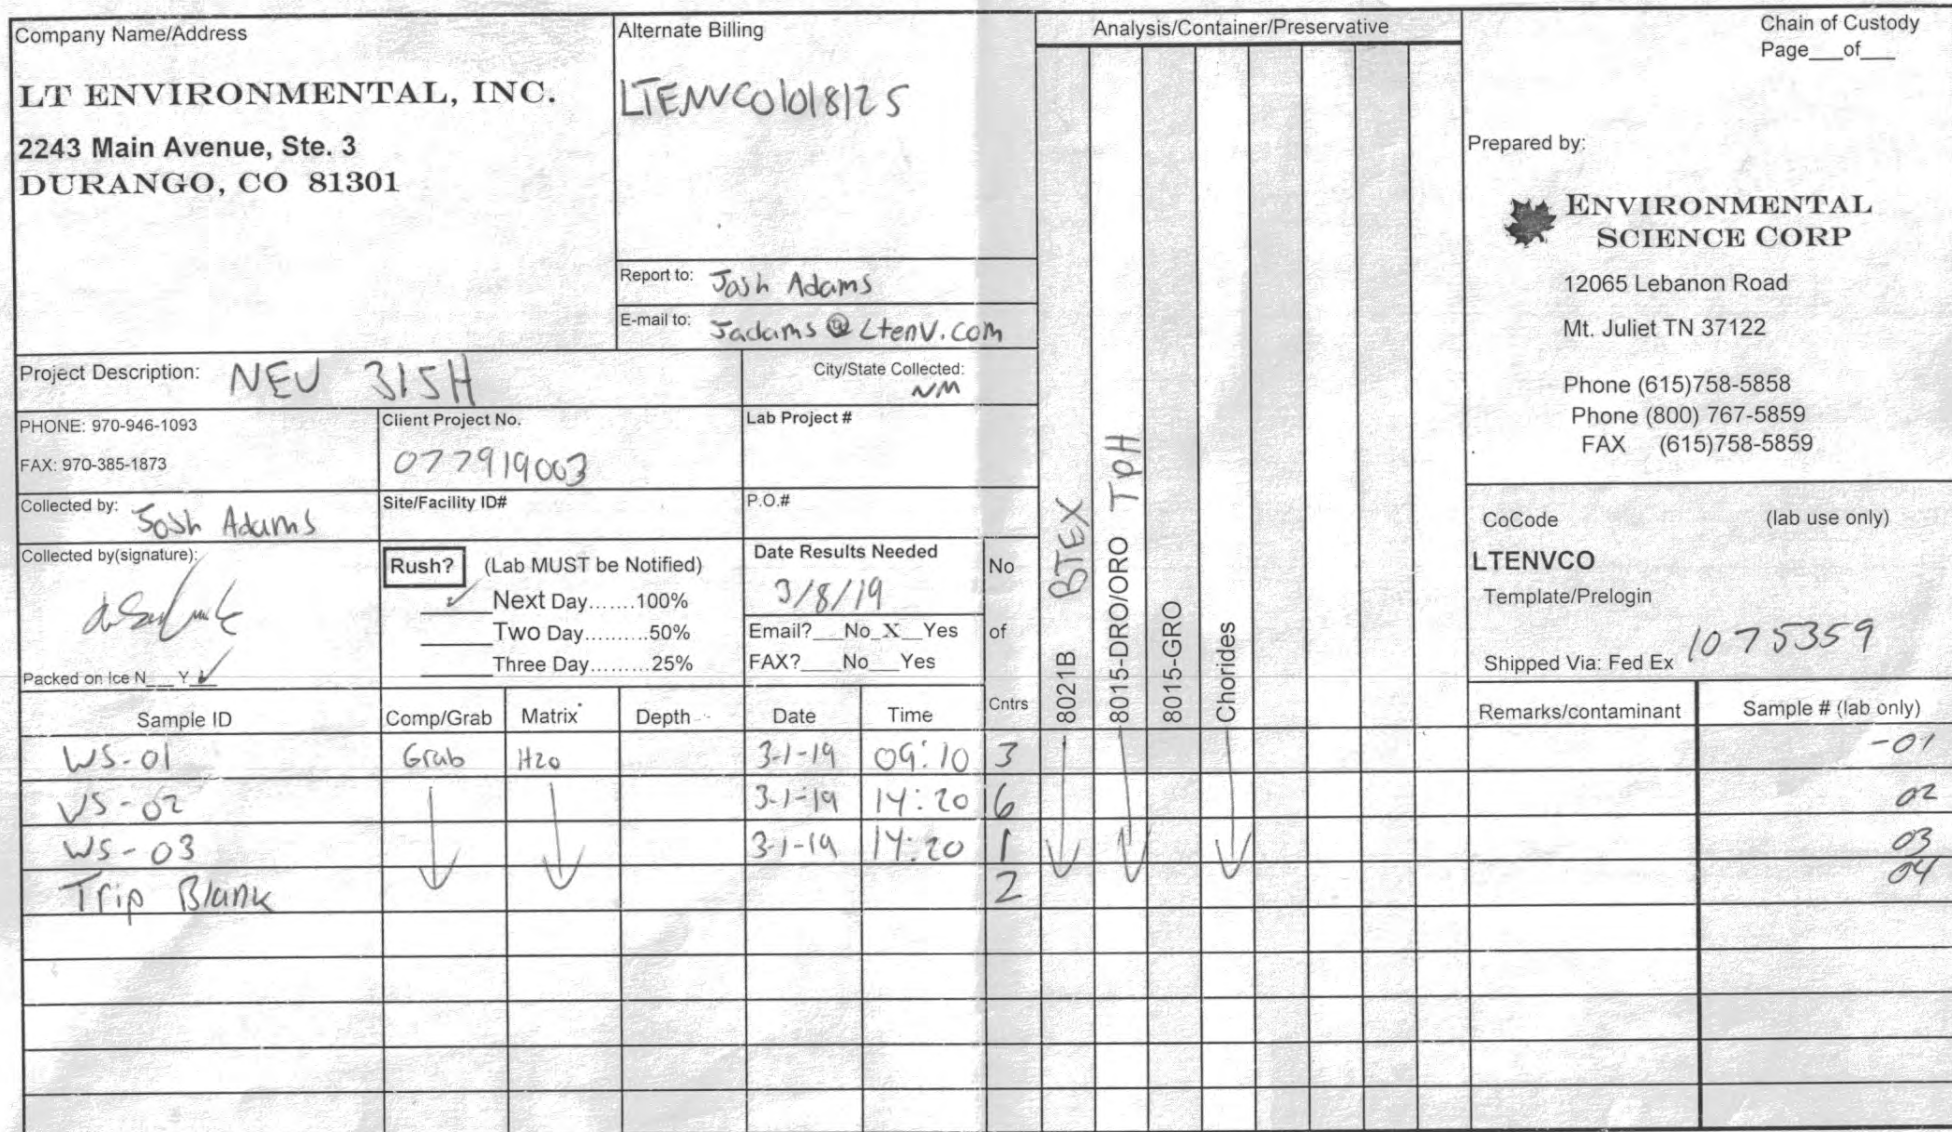 Company Name/Address
LT ENVIRONMENTAL, INC.
2243 Main Avenue, Ste. 3
DURANGO, CO 81301
Alternate Billing
LTENVCO1018125
Report to: Josh Adams
E-mail to: Jadams@Ltenv.com
Analysis/Container/Preservative
Chain of Custody
Page___of___
Prepared by:
ENVIRONMENTAL
SCIENCE CORP
12065 Lebanon Road
Mt. Juliet TN 37122
Phone (615)758-5858
Phone (800) 767-5859
FAX (615)758-5859
Project Description: NEU 315H
City/State Collected:
NM
PHONE: 970-946-1093
FAX: 970-385-1873
Client Project No.
077919003
Lab Project #
Collected by: Josh Adams
Site/Facility ID#
P.O.#
Collected by(signature):
Packed on Ice N___ Y ✓
Rush? (Lab MUST be Notified)
✓ Next Day.......100%
______Two Day..........50%
______Three Day.........25%
Date Results Needed
3/8/19
Email?___No_X__Yes
FAX?____No___Yes
No
of
Cntrs
8021B BTEX
8015-DRO/ORO TPH
8015-GRO
Chorides
CoCode (lab use only)
LTENVCO
Template/Prelogin
1075359
Shipped Via: Fed Ex
Sample ID Comp/Grab Matrix* Depth Date Time Remarks/contaminant Sample # (lab only)
WS-01 Grab H2O 3-1-19 09:10 3 -01
WS-02 3-1-19 14:20 6 02
WS-03 3-1-19 14:20 1 03
Trip Blank 2 04